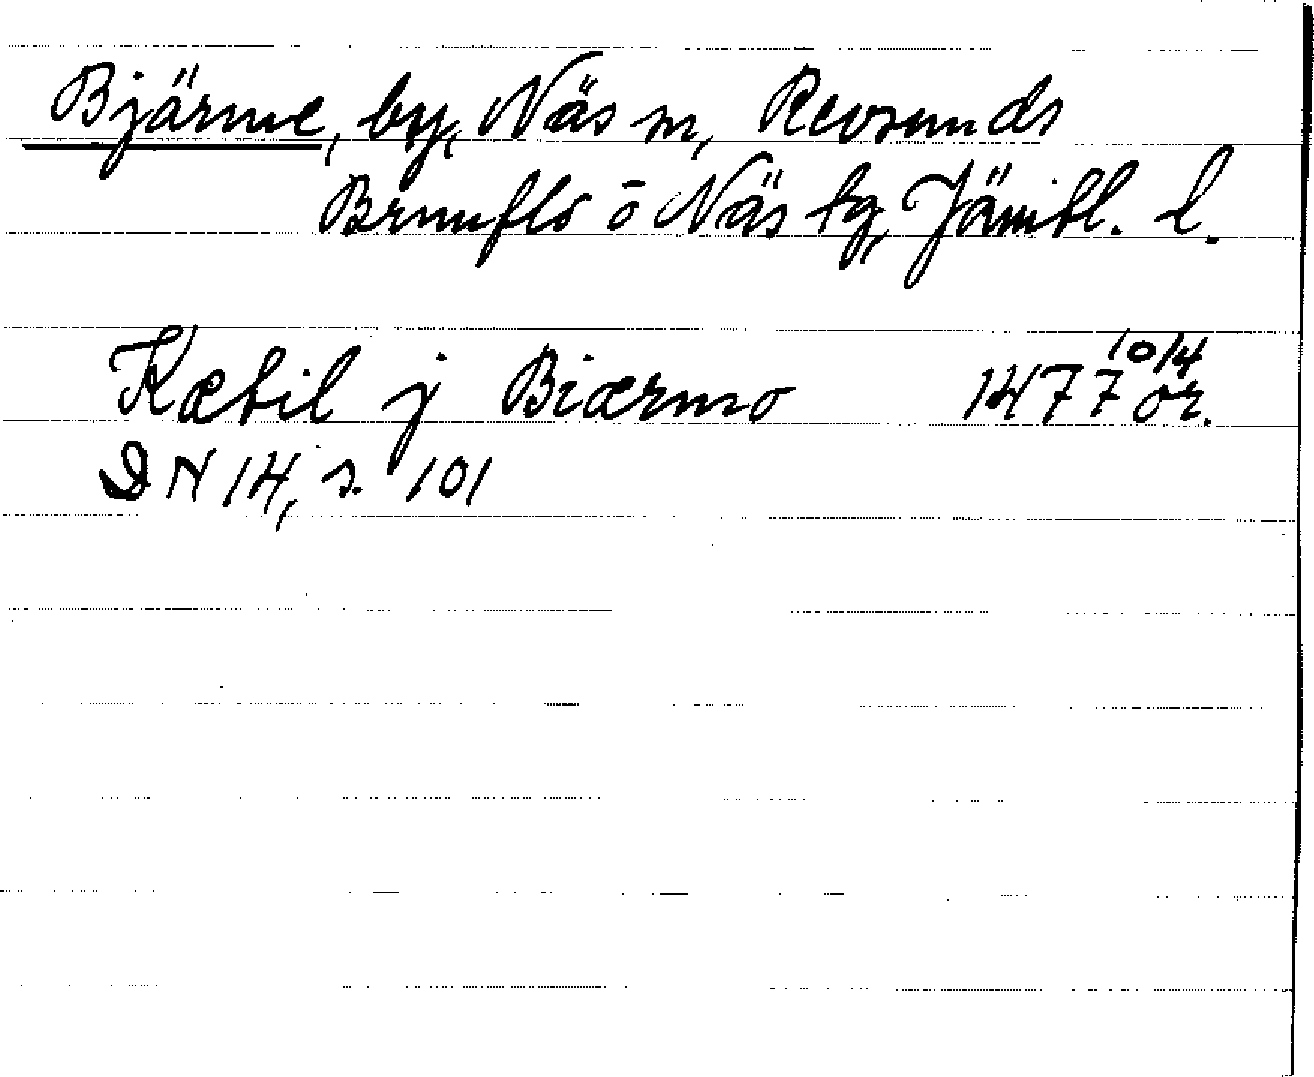 Bjärme, by, Näs sn, Revsunds
Brunflo o Näs tg, Jämtl. l.
Kætil j Biærmo 1477 10/4 or.
DN 14, s. 101